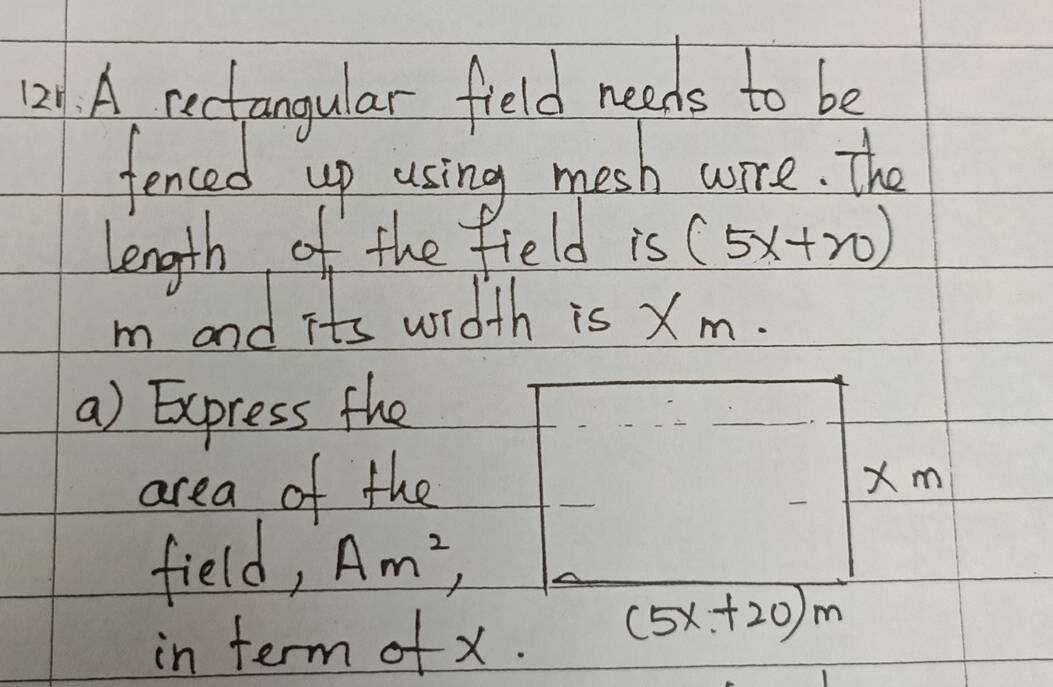 12. A rectangular field needs to be
fenced up using mesh wire. The
length of the field is (5x+20)
m and its width is x m.
a) Express the
area of the
field, A m²,
in term of x.
x m
(5x+20)m